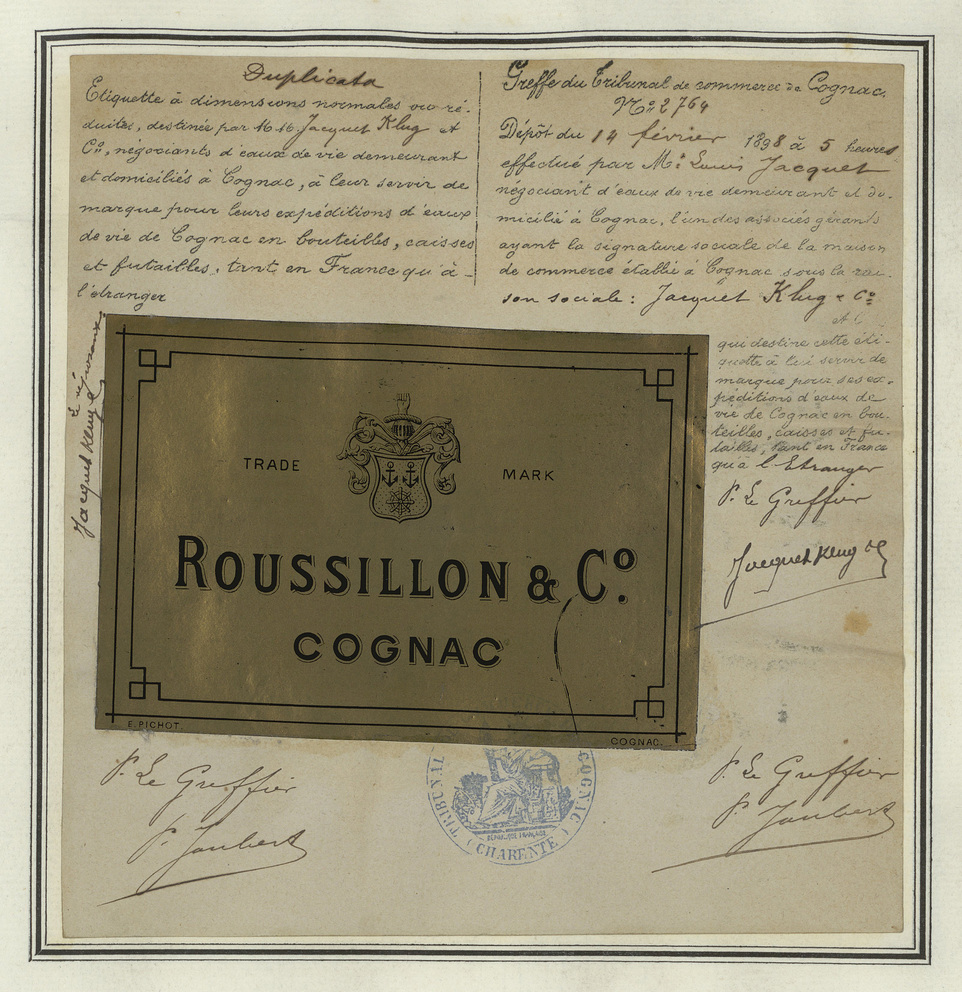 Duplicata
Etiquette à dimensions normales ou ré-
duites, destinée par M.M. Jacquet Klug et
Cº, négociants d'eaux de vie demeurant
et domiciliés à Cognac, à leur servir de
marque pour leurs expéditions d'eaux
de vie de Cognac en bouteilles, caisses
et futailles, tant en France qu'à
l'étranger
Jacquet Klug
Greffe du Tribunal de commerce de Cognac.
Nº 2764
Dépôt du 14 février 1898 à 5 heures
effectué par Mr Louis Jacquet
négociant d'eaux de vie demeurant et do-
micilié à Cognac, l'un des associés gérants
ayant la signature sociale de la maison
de commerce établie à Cognac sous la rai-
son sociale : Jacquet Klug & Cº
qui destine cette éti-
quette à lui servir de
marque pour ses ex-
péditions d'eaux de
vie de Cognac en bou-
teilles, caisses et fu-
tailles, tant en France
qu'à l'Etranger
P. Le Greffier
Jacquet Klug
TRADE MARK
ROUSSILLON & Cº.
COGNAC
E. PICHOT.
COGNAC.
P. Le Greffier
P. Joubert
TRIBUNAL
COGNAC
REPUBLIQUE FRANÇAISE
(CHARENTE)
P. Le Greffier
P. Joubert